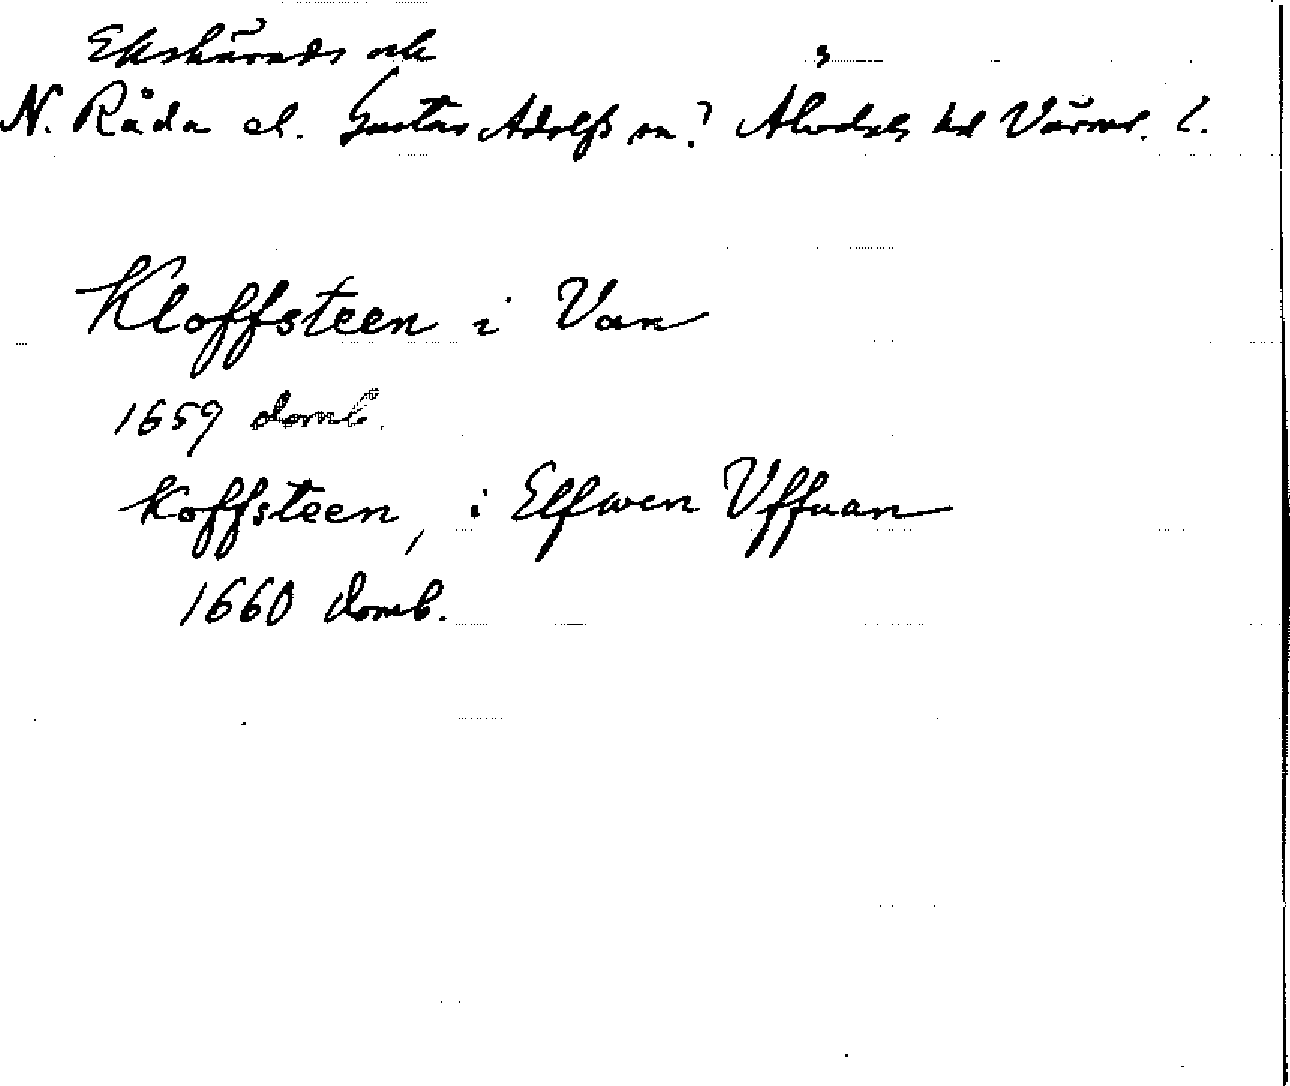 Ekshärads och
N. Råda el. Gustav Adolfs sn? Älvdals hd Värml. l.
Kloffsteen i Van
1659 domb.
Koffsteen, i Elfwen Vffuan
1660 domb.